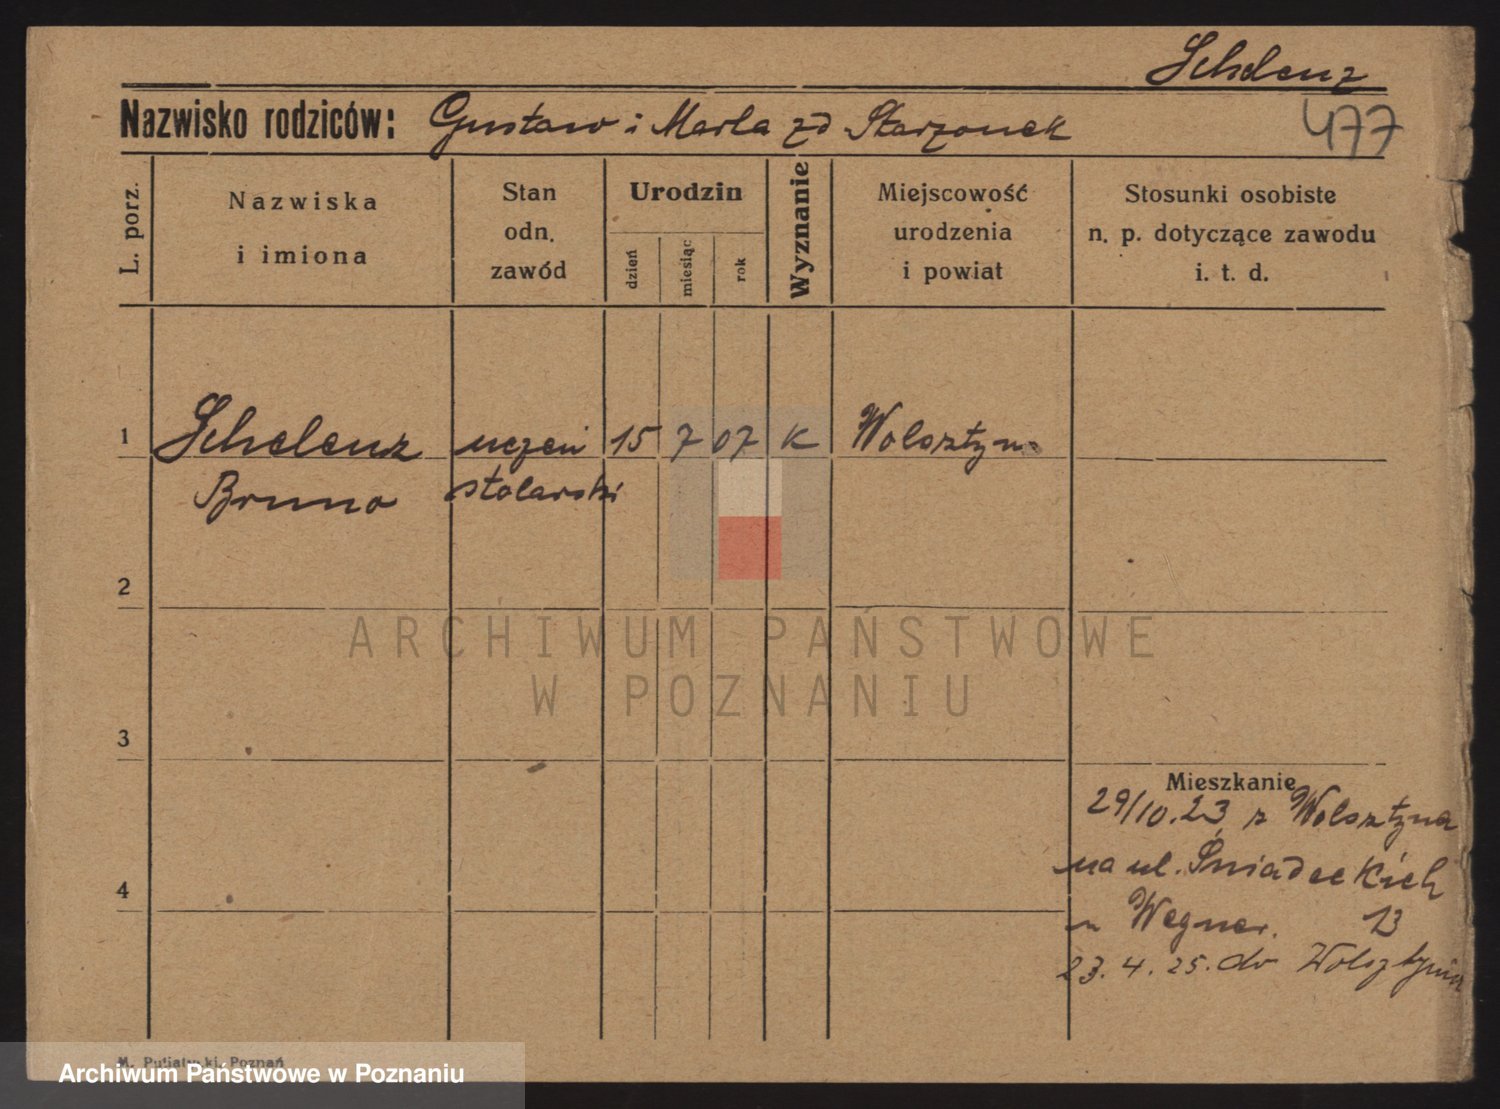 Schelenz
Nazwisko rodziców: Gustaw i Marta zd Starzonek
477
L. porz.
Nazwiska
i imiona
Stan
odn.
zawód
Urodzin
dzień
miesiąc
rok
Wyznanie
Miejscowość
urodzenia
i powiat
Stosunki osobiste
n. p. dotyczące zawodu
i. t. d.
1 Schelenz uczeń 15 7 07 K Wolsztyn
Bruno stolarski
2
3
4
Mieszkanie
29/10.23 z Wolsztyna
na ul. Śniadeckich
u Wegner. 13
23.4.25. do Wolsztyna
ARCHIWUM PAŃSTWOWE
W POZNANIU
M. Putiatycki, Poznań
Archiwum Państwowe w Poznaniu